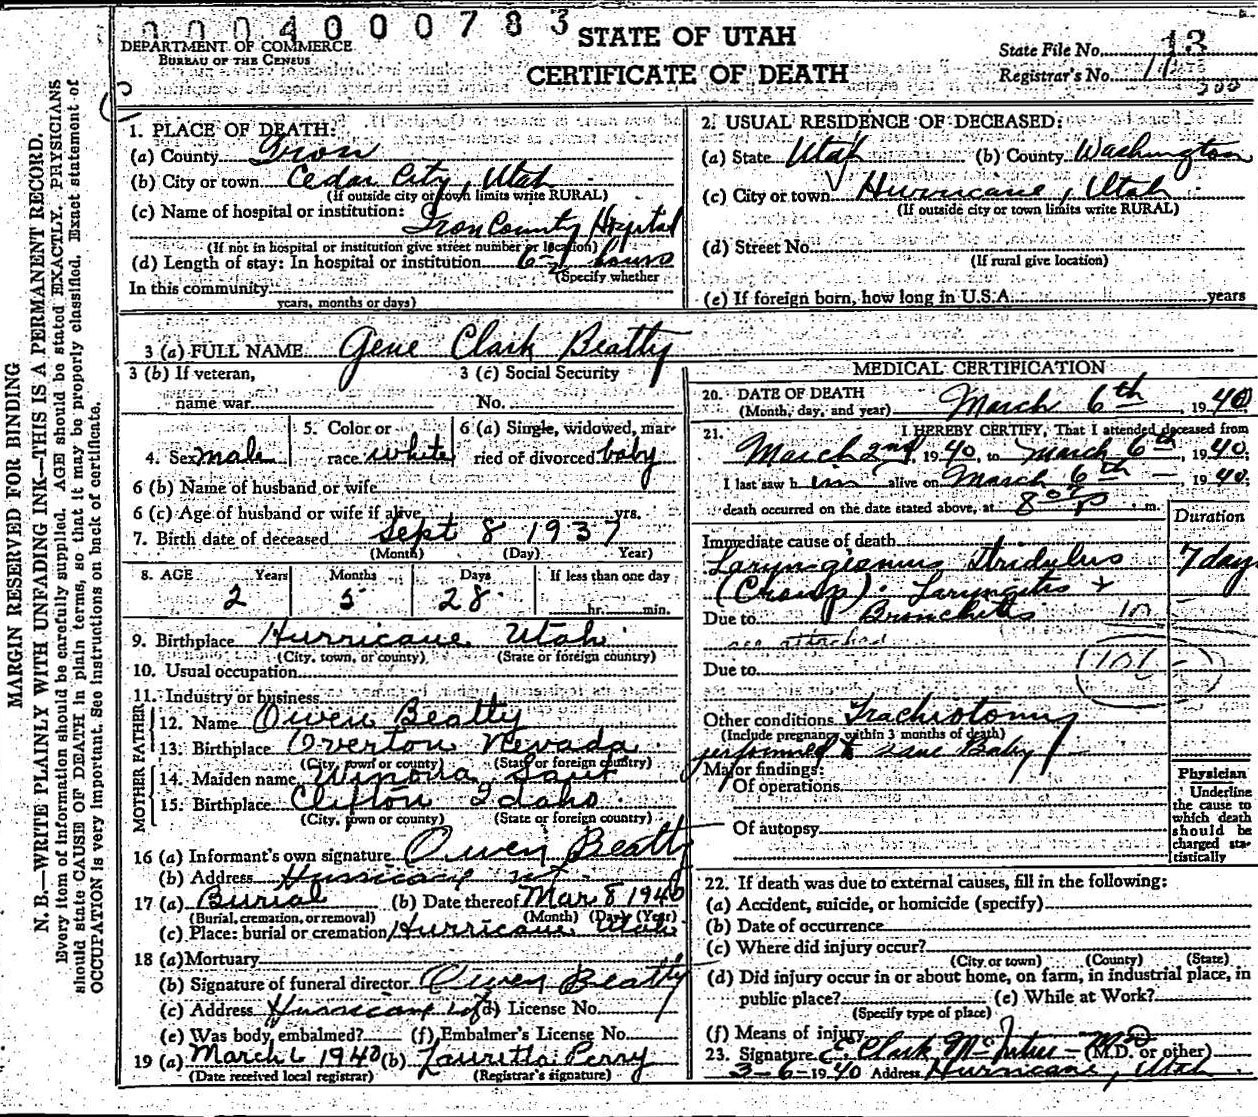 0004000783
STATE OF UTAH
CERTIFICATE OF DEATH
DEPARTMENT OF COMMERCE
BUREAU OF THE CENSUS
State File No. 13
Registrar's No. 11
MARGIN RESERVED FOR BINDING
N. B.—WRITE PLAINLY WITH UNFADING INK—THIS IS A PERMANENT RECORD.
Every item of information should be carefully supplied. AGE should be stated EXACTLY. PHYSICIANS
should state CAUSE OF DEATH in plain terms, so that it may be properly classified. Exact statement of
OCCUPATION is very important. See instructions on back of certificate.
1. PLACE OF DEATH:
(a) County Iron
(b) City or town Cedar City, Utah
(If outside city or town limits write RURAL)
(c) Name of hospital or institution:
Iron County Hspital
(If not in hospital or institution give street number or location)
(d) Length of stay: In hospital or institution hours
(Specify whether
In this community
years, months or days)
2. USUAL RESIDENCE OF DECEASED:
(a) State Utah (b) County Washington
(c) City or town Hurricane, Utah
(If outside city or town limits write RURAL)
(d) Street No.
(If rural give location)
(e) If foreign born, how long in U.S.A. years
3 (a) FULL NAME Gene Clark Beatty
3 (b) If veteran, 3 (c) Social Security
name war No.
4. Sex male
5. Color or
race white
6 (a) Single, widowed, mar-
ried of divorced baby
6 (b) Name of husband or wife
6 (c) Age of husband or wife if alive yrs.
7. Birth date of deceased Sept 8 1937
(Month) (Day) Year)
8. AGE Years Months Days If less than one day
2 5 28 hr. min.
9. Birthplace Hurricane Utah
(City, town, or county) (State or foreign country)
10. Usual occupation
11. Industry or business
FATHER
12. Name Owen Beatty
13. Birthplace Overton Nevada
(City, town or county) (State or foreign country)
MOTHER
14. Maiden name Winona
15. Birthplace Clifton Idaho
(City, town or county) (State or foreign country)
16 (a) Informant's own signature Owen Beatty
(b) Address Hurricane Ut.
17 (a) Burial (b) Date thereof Mar 8 1940
(Burial, cremation, or removal) (Month) (Day) (Year)
(c) Place: burial or cremation Hurricane Utah
18 (a) Mortuary
(b) Signature of funeral director Owen Beatty
(c) Address Hurricane Ut (d) License No.
(e) Was body embalmed? (f) Embalmer's License No.
19 (a) March 6 1940 (b) Lauretta Perry
(Date received local registrar) (Registrar's signature)
MEDICAL CERTIFICATION
20. DATE OF DEATH
(Month, day, and year) March 6th, 1940
21. I HEREBY CERTIFY, That I attended deceased from
March 2nd, 1940, to March 6th, 1940;
I last saw him alive on March 6th 1940;
death occurred on the date stated above, at 8 00 P m.
Duration
Immediate cause of death
Laryngismus Stridulus 7 days
(Croup). Laryngitis +
Due to Bronchitis
see attached
Due to
Other conditions Trachiotomy
(Include pregnancy within 3 months of death)
performed to save Baby
Major findings:
Of operations
Of autopsy
Physician
Underline
the cause to
which death
should be
charged sta-
tistically
22. If death was due to external causes, fill in the following:
(a) Accident, suicide, or homicide (specify)
(b) Date of occurrence
(c) Where did injury occur?
(City or town) (County) (State)
(d) Did injury occur in or about home, on farm, in industrial place, in
public place? (e) While at Work?
(Specify type of place)
(f) Means of injury
23. Signature C. Clark McIntire - MD (M.D. or other)
3-6-1940 Address Hurricane, Utah